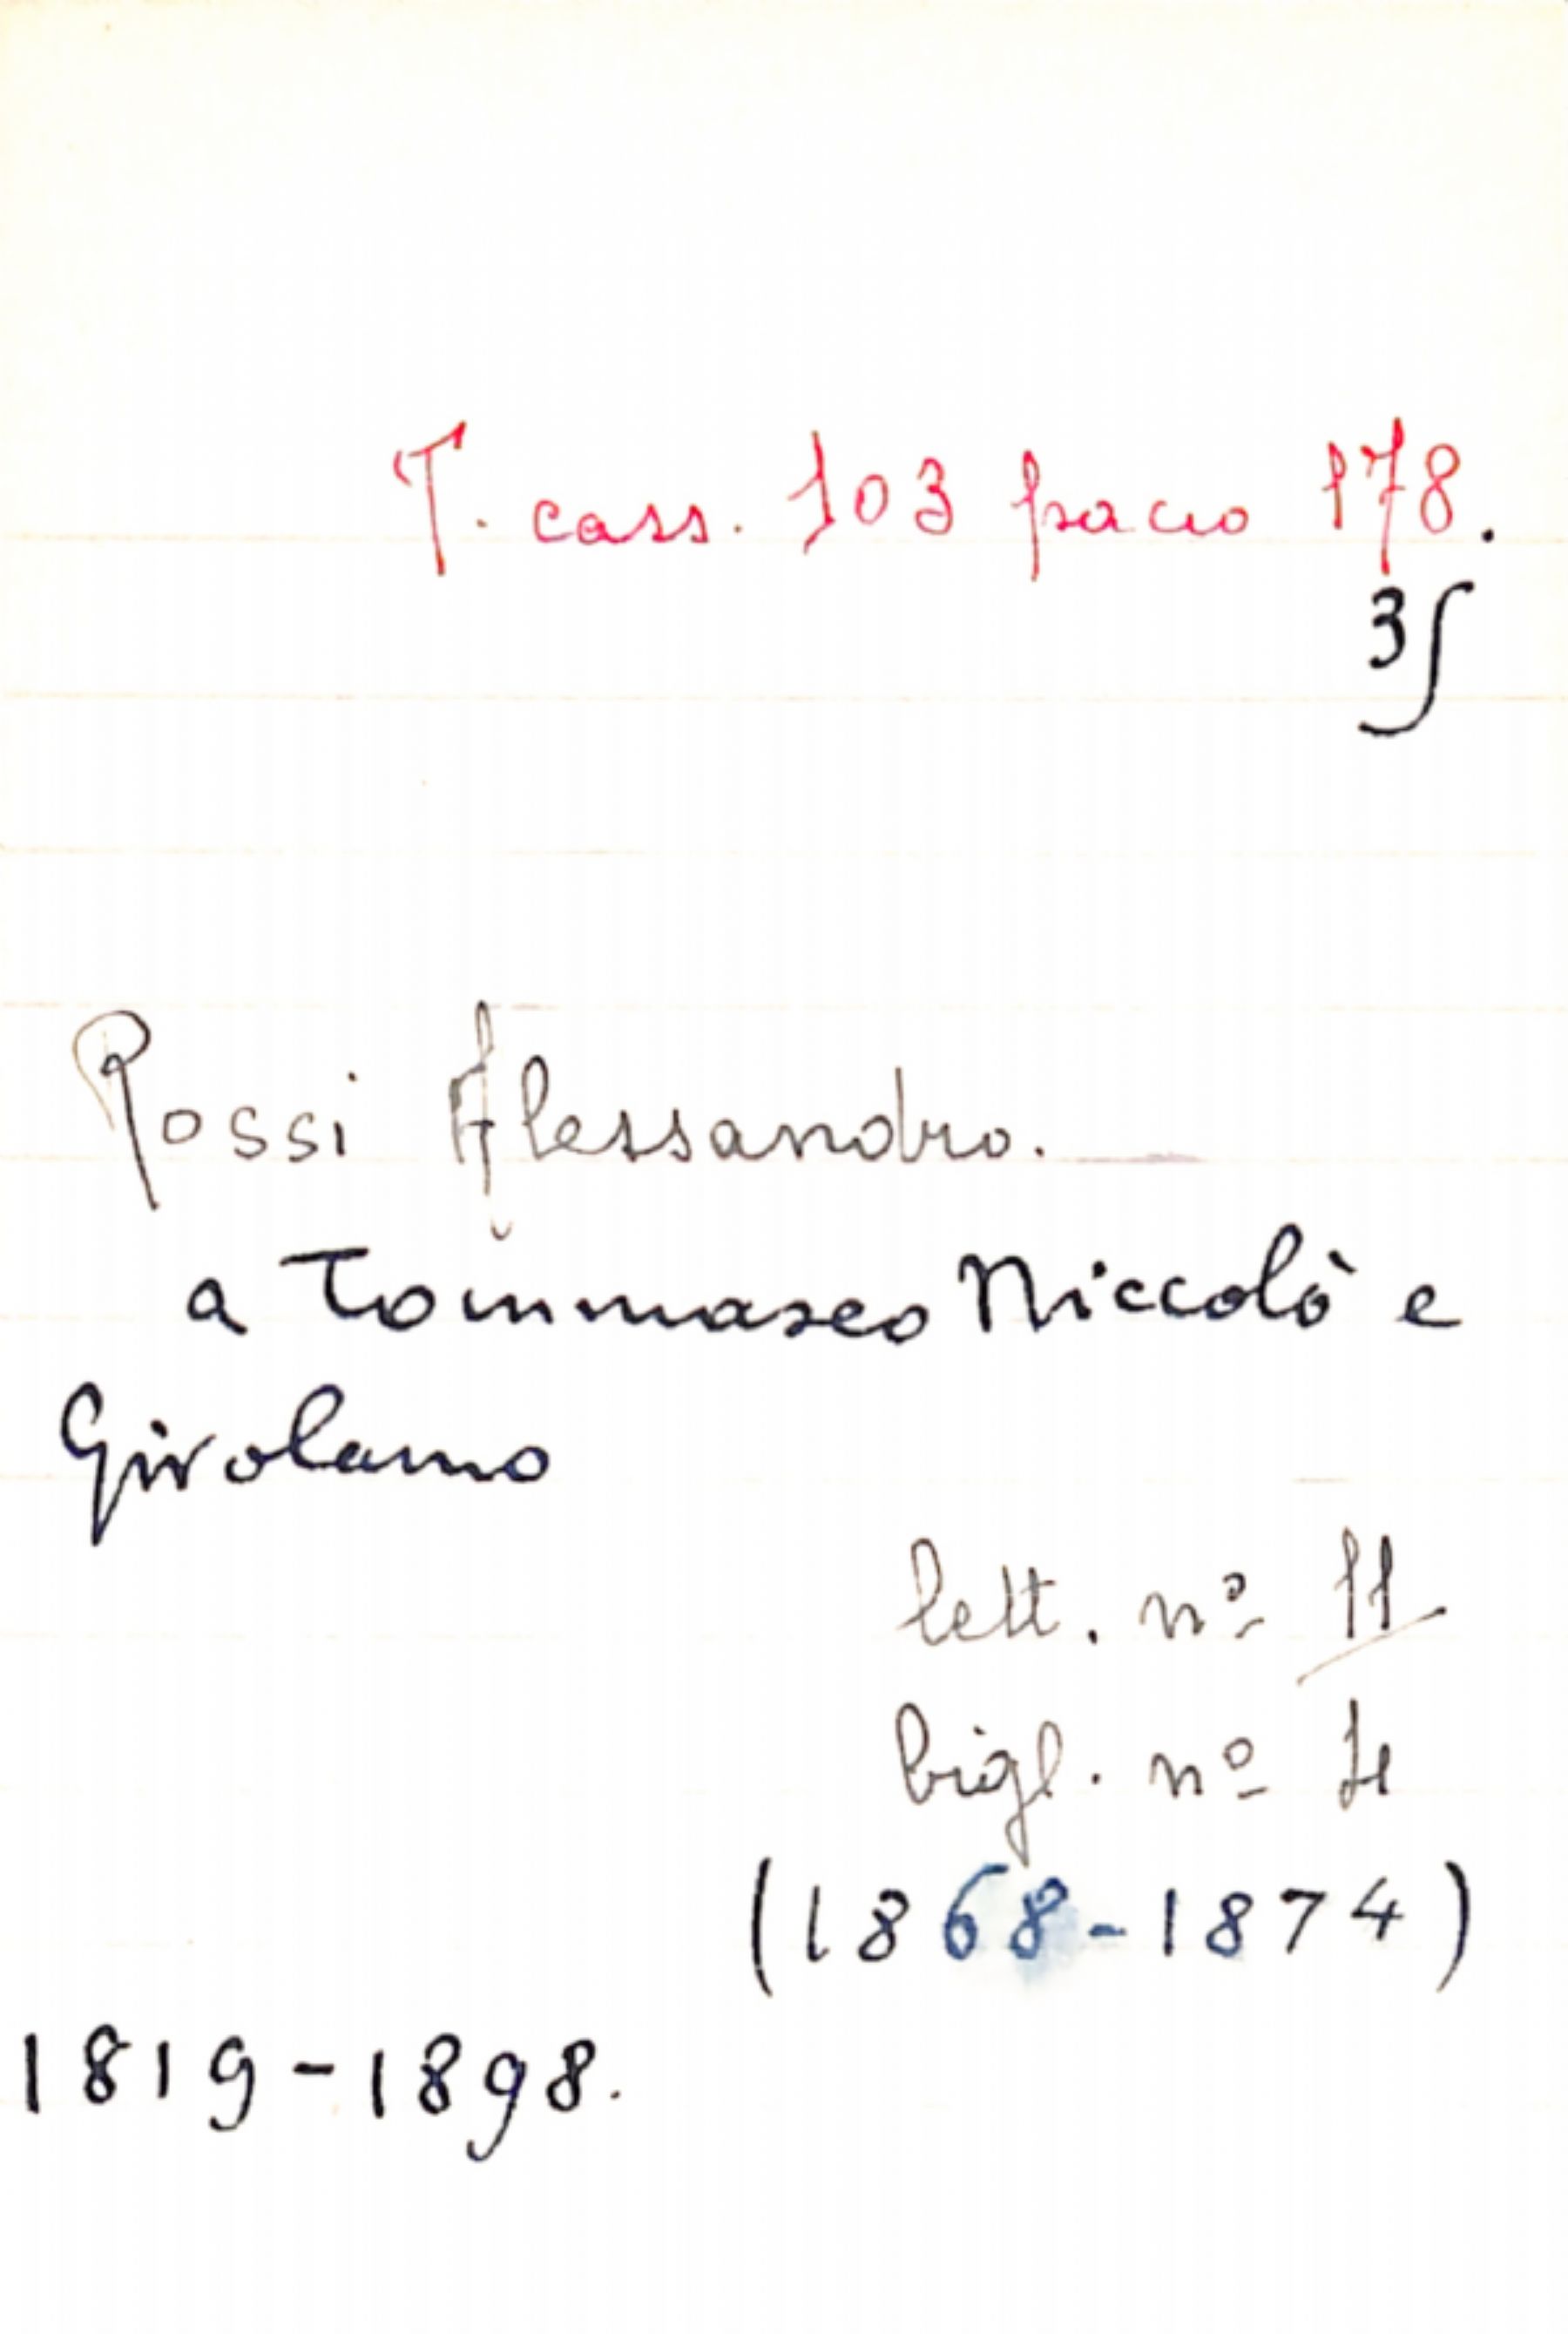 T. cass. 103 pacco 178.
3
Rossi Alessandro.
a Tommaseo Niccolò e
Girolamo
lett. nº 11
bigl. nº 4
(1868-1874)
1819-1898.